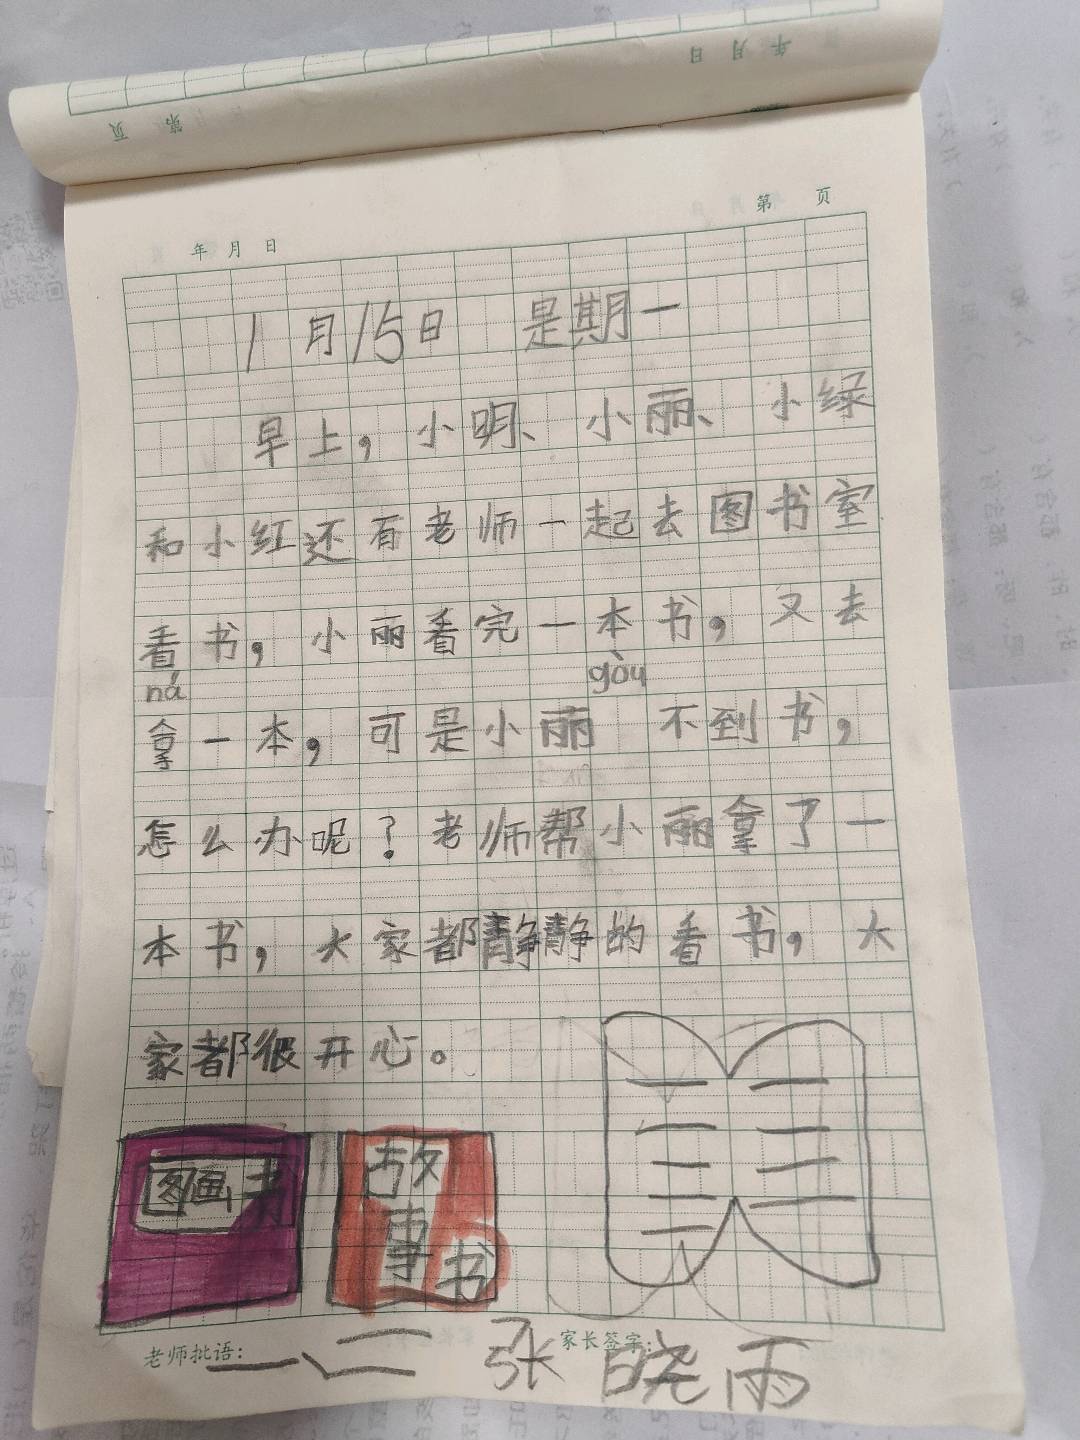 年 月 日
第 页
年 月 日 第 页
1月15日 是期一
早上，小明、小丽、小绿
和小红还有老师一起去图书室
看书，小丽看完一本书，又去
ná gòu
拿一本，可是小丽 不到书，
怎么办呢？老师帮小丽拿了一
本书，大家都静静的看书，大
家都很开心。
图画书
故事书
老师批语：
家长签字：
一、二 张晓雨